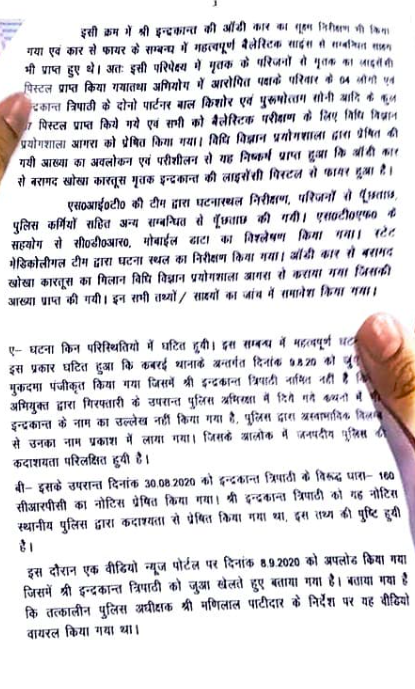 3
इसी क्रम में श्री इन्द्रकान्त की ऑडी कार का सूक्ष्म निरीक्षण भी किया
गया एवं कार से फायर के सम्बन्ध में महत्वपूर्ण बैलेस्टिक साइंस से सम्बन्धित साक्ष्य
भी प्राप्त हुए थे। अतः इसी परिपेक्ष्य में मृतक के परिजनों से मृतक का लाइसेंसी
पिस्टल प्राप्त किया गयातथा अभियोग में आरोपित पक्षके परिवार के 04 लोगो एवं
न्द्रकान्त त्रिपाठी के दोनो पार्टनर बाल किशोर एवं पुरूषोत्तम सोनी आदि के कुल
पिस्टल प्राप्त किये गये एवं सभी को बैलेस्टिक परीक्षण के लिए विधि विज्ञान
प्रयोगशाला आगरा को प्रेषित किया गया। विधि विज्ञान प्रयोगशाला द्वारा प्रेषित की
गयी आख्या का अवलोकन एवं परीशीलन से यह निष्कर्ष प्राप्त हुआ कि ऑडी कार
से बरामद खोखा कारतूस मृतक इन्द्रकान्त की लाइसेंसी पिस्टल से फायर हुआ है।
एस०आई०टी० की टीम द्वारा घटनास्थल निरीक्षण, परिजनों से पूँछताछ,
पुलिस कर्मियों सहित अन्य सम्बन्धित से पूँछताछ की गयी। एस०टी०एफ० के
सहयोग से सी०डी०आर०, मोबाईल डाटा का विश्लेषण किया गया। स्टेट
मेडिकोलीगल टीम द्वारा घटना स्थल का निरीक्षण किया गया। ऑडी कार से बरामद
खोखा कारतूस का मिलान विधि विज्ञान प्रयोगशाला आगरा से कराया गया जिसकी
आख्या प्राप्त की गयी। इन सभी तथ्यों/ साक्ष्यों का जांच में समावेश किया गया।
ए– घटना किन परिस्थितियो में घटित हुयी। इस सम्बन्ध में महत्वपूर्ण घट
इस प्रकार घटित हुआ कि कबरई थानाके अन्तर्गत दिनांक 9.8.20 को जु
मुकदमा पंजीकृत किया गया जिसमें श्री इन्द्रकान्त त्रिपाठी नामित नही है कि
अभियुक्त द्वारा गिरफ्तारी के उपरान्त पुलिस अभिरक्षा में दिये गये कथनो में भी
इन्द्रकान्त के नाम का उल्लेख नहीं किया गया है, पुलिस द्वारा अस्वाभाविक विलम्ब
से उनका नाम प्रकाश में लाया गया। जिसके आलोक में जनपदीय पुलिस की
कदाशयता परिलक्षित हुयी है।
बी– इसके उपरान्त दिनांक 30.08.2020 को इन्द्रकान्त त्रिपाठी के विरूद्ध धारा– 160
सीआरपीसी का नोटिस प्रेषित किया गया। श्री इन्द्रकान्त त्रिपाठी को यह नोटिस
स्थानीय पुलिस द्वारा कदाश्यता से प्रेषित किया गया था, इस तथ्य की पुष्टि हुयी
है।
इस दौरान एक वीडियो न्यूज पोर्टल पर दिनांक 8.9.2020 को अपलोड किया गया
जिसमें श्री इन्द्रकान्त त्रिपाठी को जुआ खेलते हुए बताया गया है। बताया गया है
कि तत्कालीन पुलिस अधीक्षक श्री मणिलाल पाटीदार के निर्देश पर यह वीडियो
वायरल किया गया था।